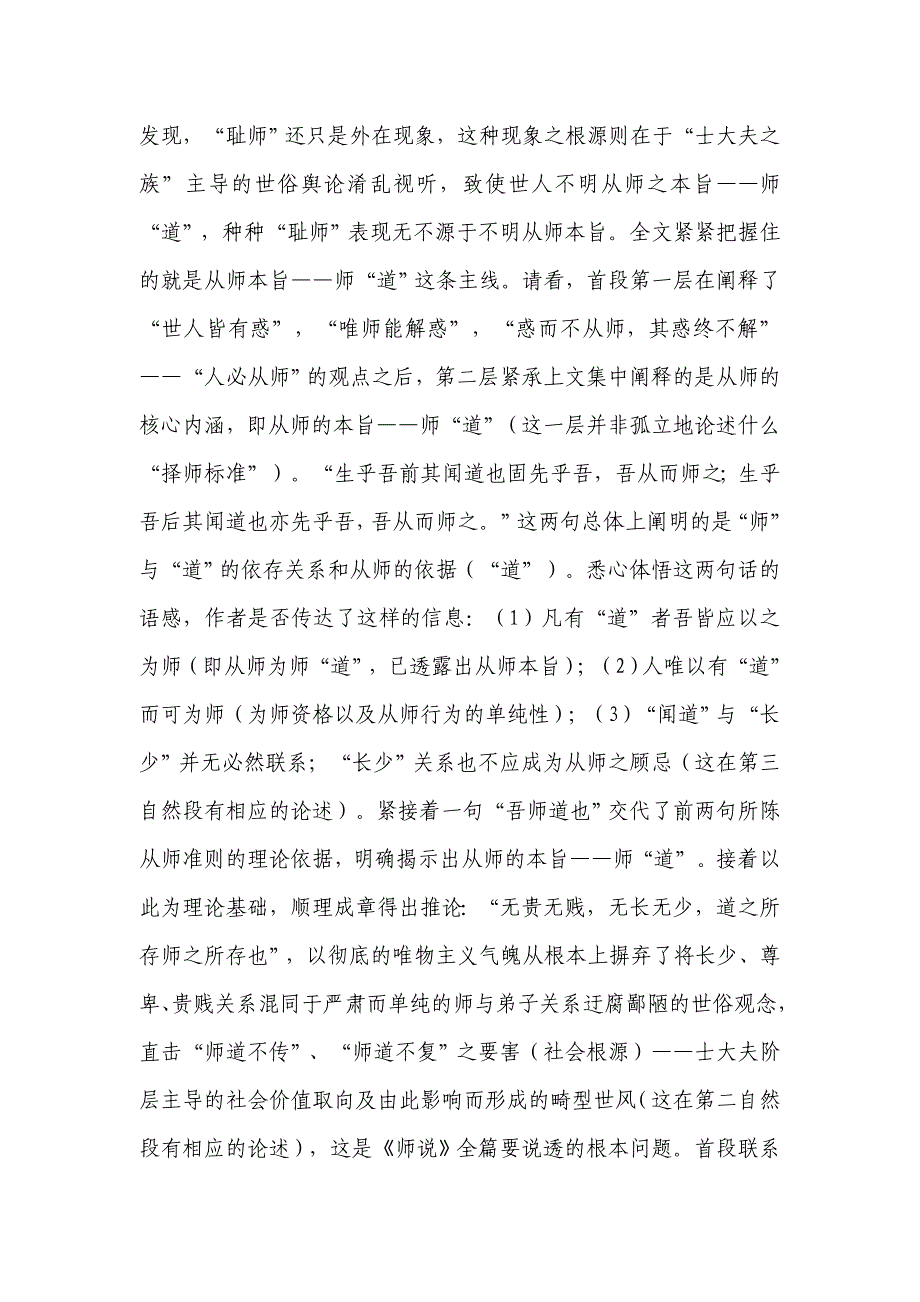 发现，“耻师”还只是外在现象，这种现象之根源则在于“士大夫之
族”主导的世俗舆论淆乱视听，致使世人不明从师之本旨——师
“道”，种种“耻师”表现无不源于不明从师本旨。全文紧紧把握住
的就是从师本旨——师“道”这条主线。请看，首段第一层在阐释了
“世人皆有惑”，“唯师能解惑”，“惑而不从师，其惑终不解”
——“人必从师”的观点之后，第二层紧承上文集中阐释的是从师的
核心内涵，即从师的本旨——师“道”（这一层并非孤立地论述什么
“择师标准”）。“生乎吾前其闻道也固先乎吾，吾从而师之；生乎
吾后其闻道也亦先乎吾，吾从而师之。”这两句总体上阐明的是“师”
与“道”的依存关系和从师的依据（“道”）。悉心体悟这两句话的
语感，作者是否传达了这样的信息：（1）凡有“道”者吾皆应以之
为师（即从师为师“道”，已透露出从师本旨）；（2）人唯以有“道”
而可为师（为师资格以及从师行为的单纯性）；（3）“闻道”与“长
少”并无必然联系；“长少”关系也不应成为从师之顾忌（这在第三
自然段有相应的论述）。紧接着一句“吾师道也”交代了前两句所陈
从师准则的理论依据，明确揭示出从师的本旨——师“道”。接着以
此为理论基础，顺理成章得出推论：“无贵无贱，无长无少，道之所
存师之所存也”，以彻底的唯物主义气魄从根本上摒弃了将长少、尊
卑、贵贱关系混同于严肃而单纯的师与弟子关系迂腐鄙陋的世俗观念，
直击“师道不传”、“师道不复”之要害（社会根源）——士大夫阶
层主导的社会价值取向及由此影响而形成的畸型世风（这在第二自然
段有相应的论述），这是《师说》全篇要说透的根本问题。首段联系